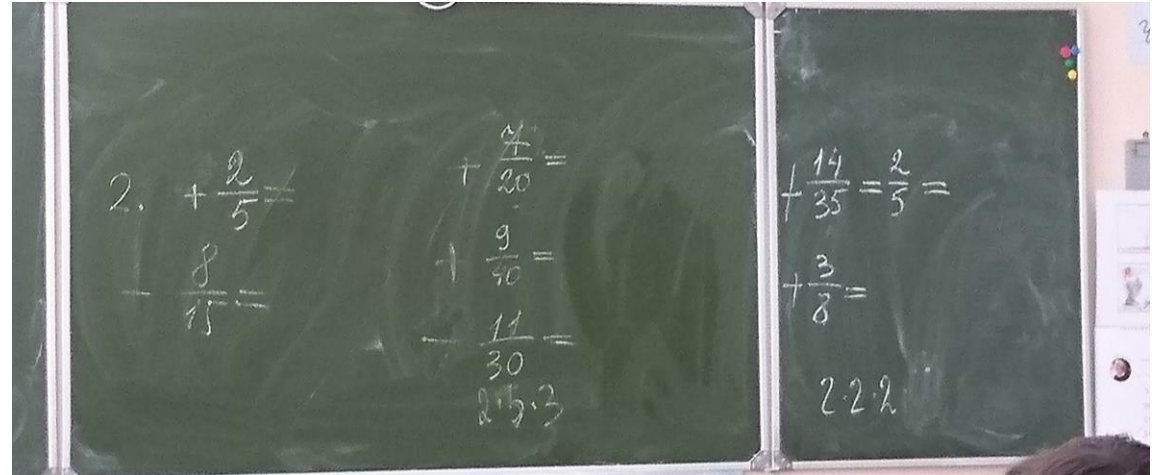 2. + 2/5 =
- 8/15 =
+ 7/20 =
+ 9/40 =
- 11/30 =
2·5·3
+ 14/35 = 2/5 =
+ 3/8 =
2·2·2